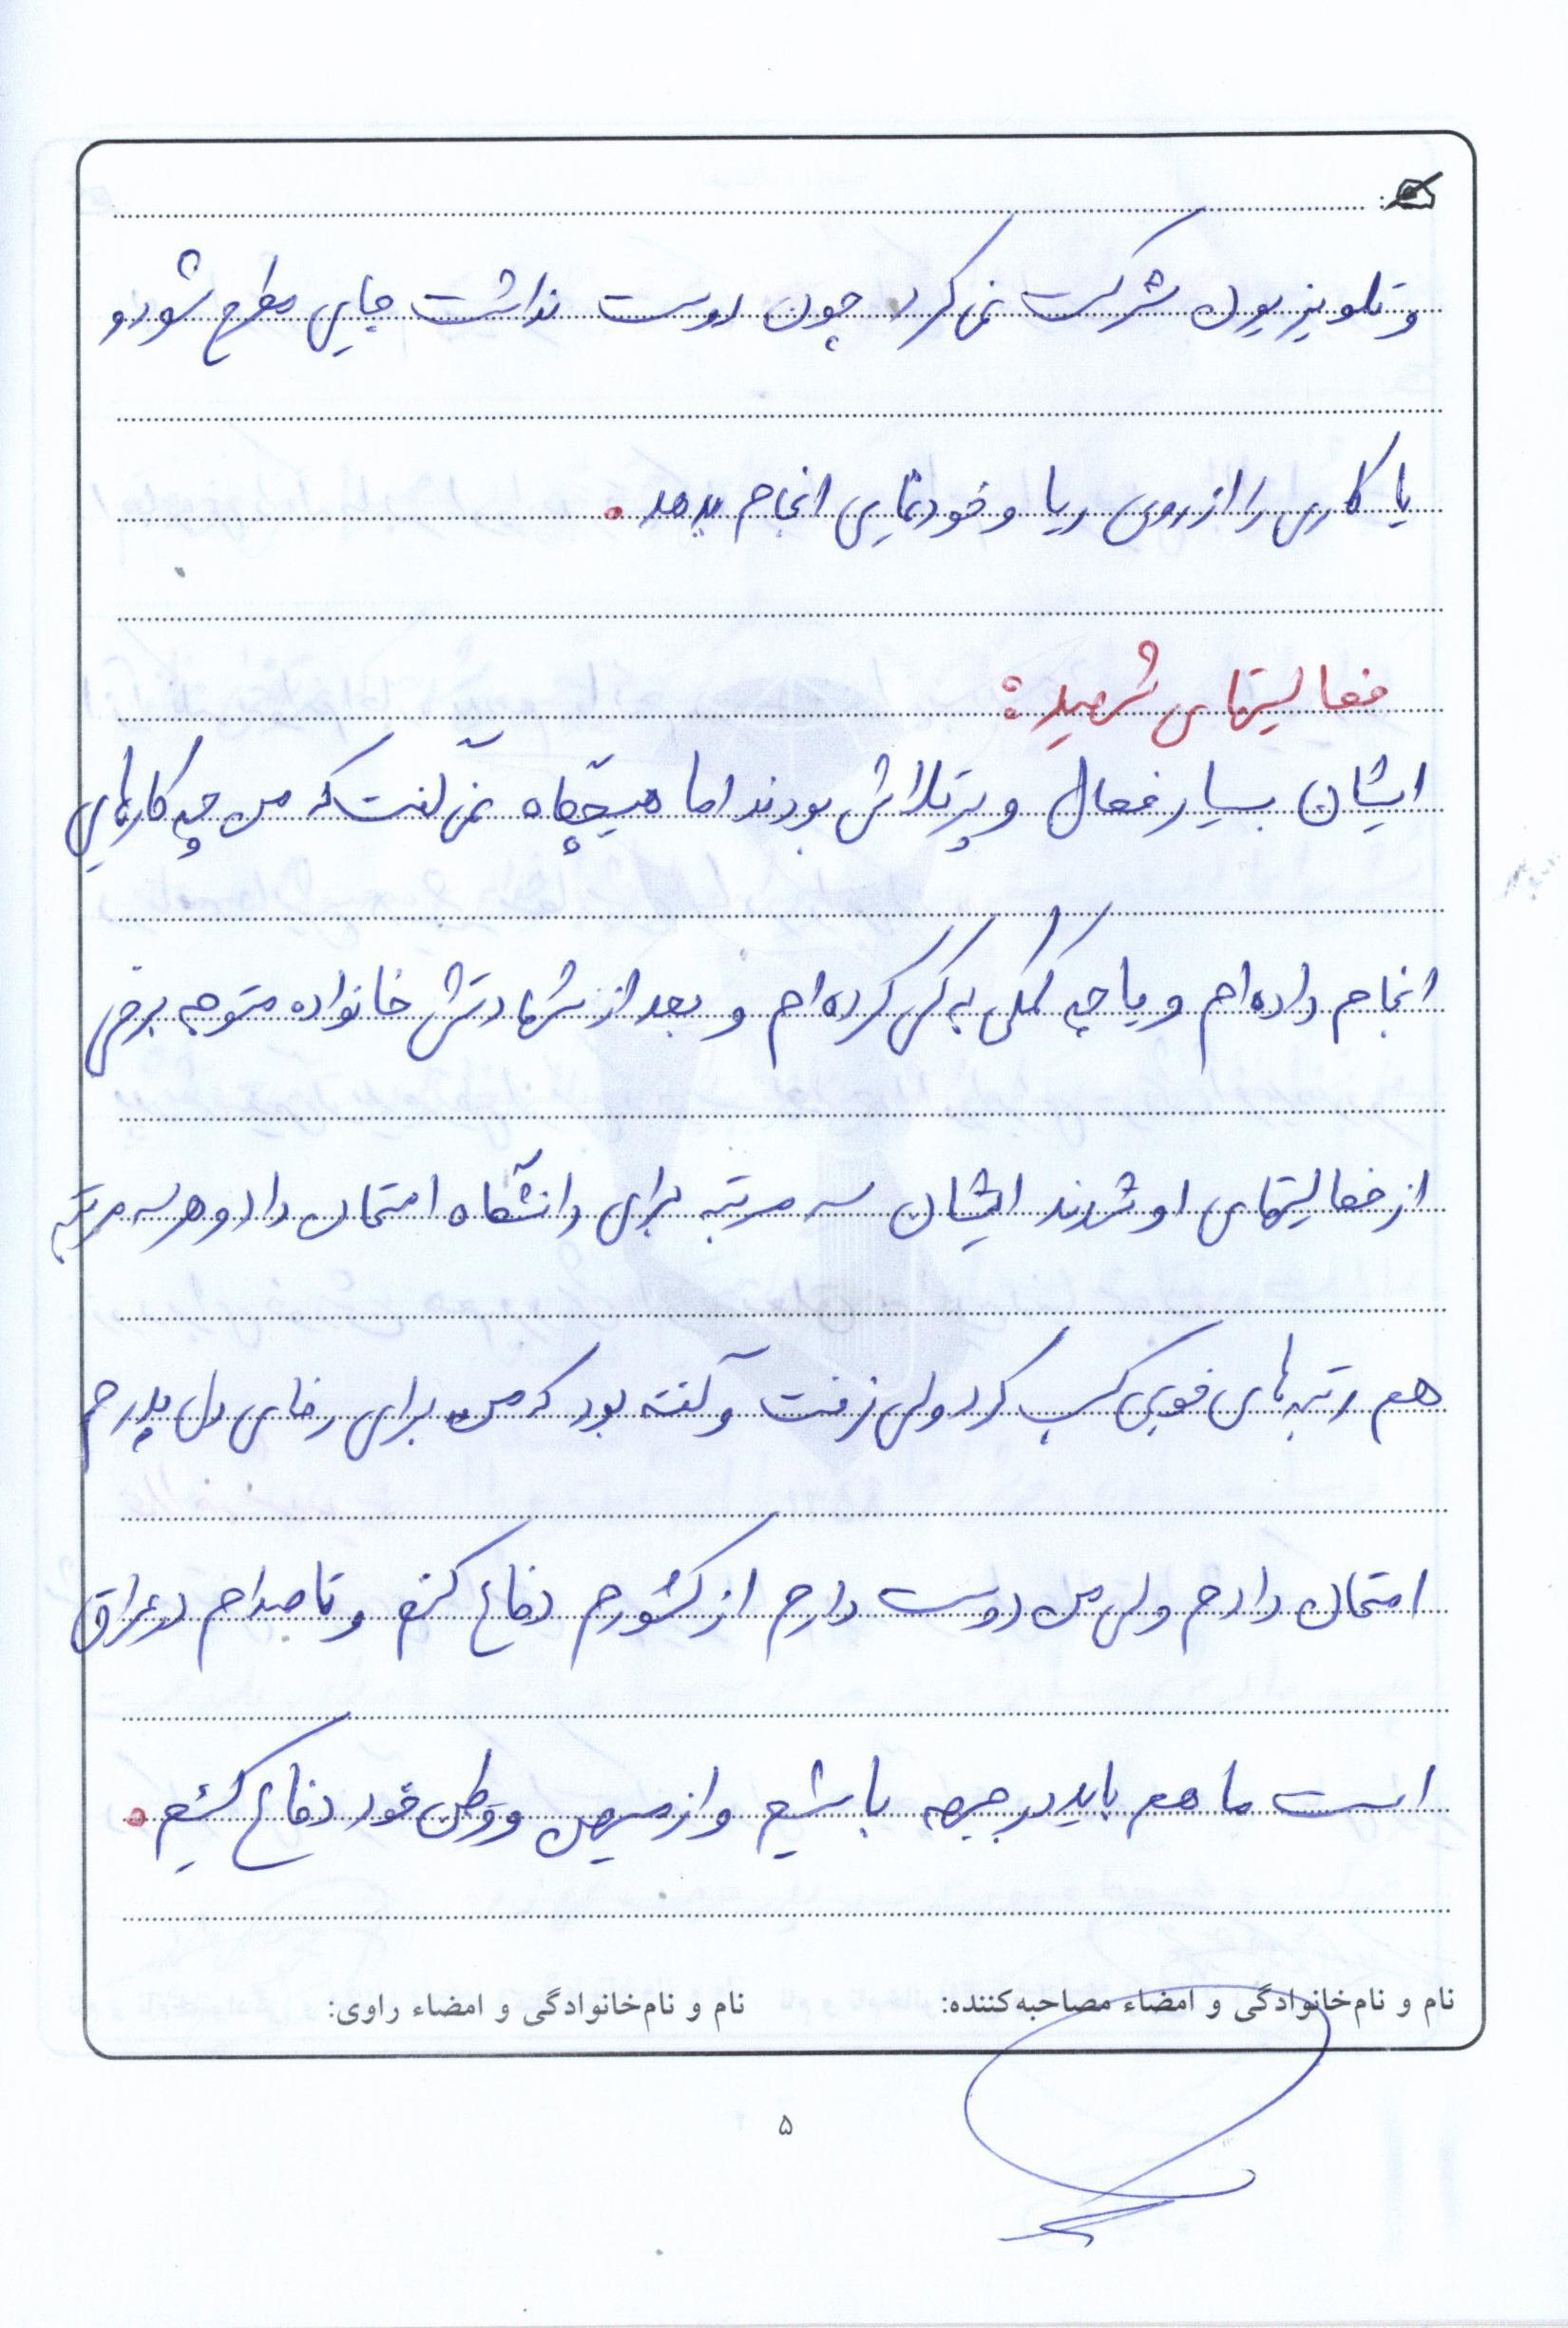 و تلویزیون شرکت نمی کرد چون دوست نداشت جایی مطرح شود و
یا کاری را از روی ریا و خودنمایی انجام بدهد.
فعالیتهای شهید:
ایشان بسیار فعال و پرتلاش بودند اما هیچگاه نمی گفت که من چه کارهایی
انجام داده ام و یا چه کمکی به کسی کرده ام و بعد از شهادتش خانواده متوجه برخی
از فعالیتهای او شدند ایشان سه مرتبه برای دانشگاه امتحان داد و هر سه مرتبه
هم رتبه های خوبی کسب کرد ولی نرفت و گفته بود که من برای رضای دل پدرم
امتحان دادم ولی من دوست دارم از کشورم دفاع کنم و تا صدام در عراق
است ما هم باید در جبهه باشیم و از میهن و وطن خود دفاع کنیم.
نام و نام‌خانوادگی و امضاء مصاحبه‌کننده: نام و نام‌خانوادگی و امضاء راوی:
۵